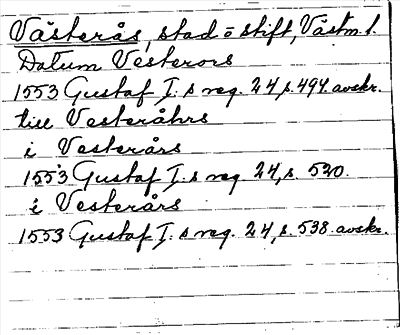 Västerås, stad o stift, Västm. l.
Datum Vesterors
1553 Gustaf I:s reg. 24, s. 494. avskr.
till Vesteråhrs
i Vesterårs
1553 Gustaf I:s reg. 24, s. 520.
i Vesterårs
1553 Gustaf I:s reg. 24, s. 538. avskr.